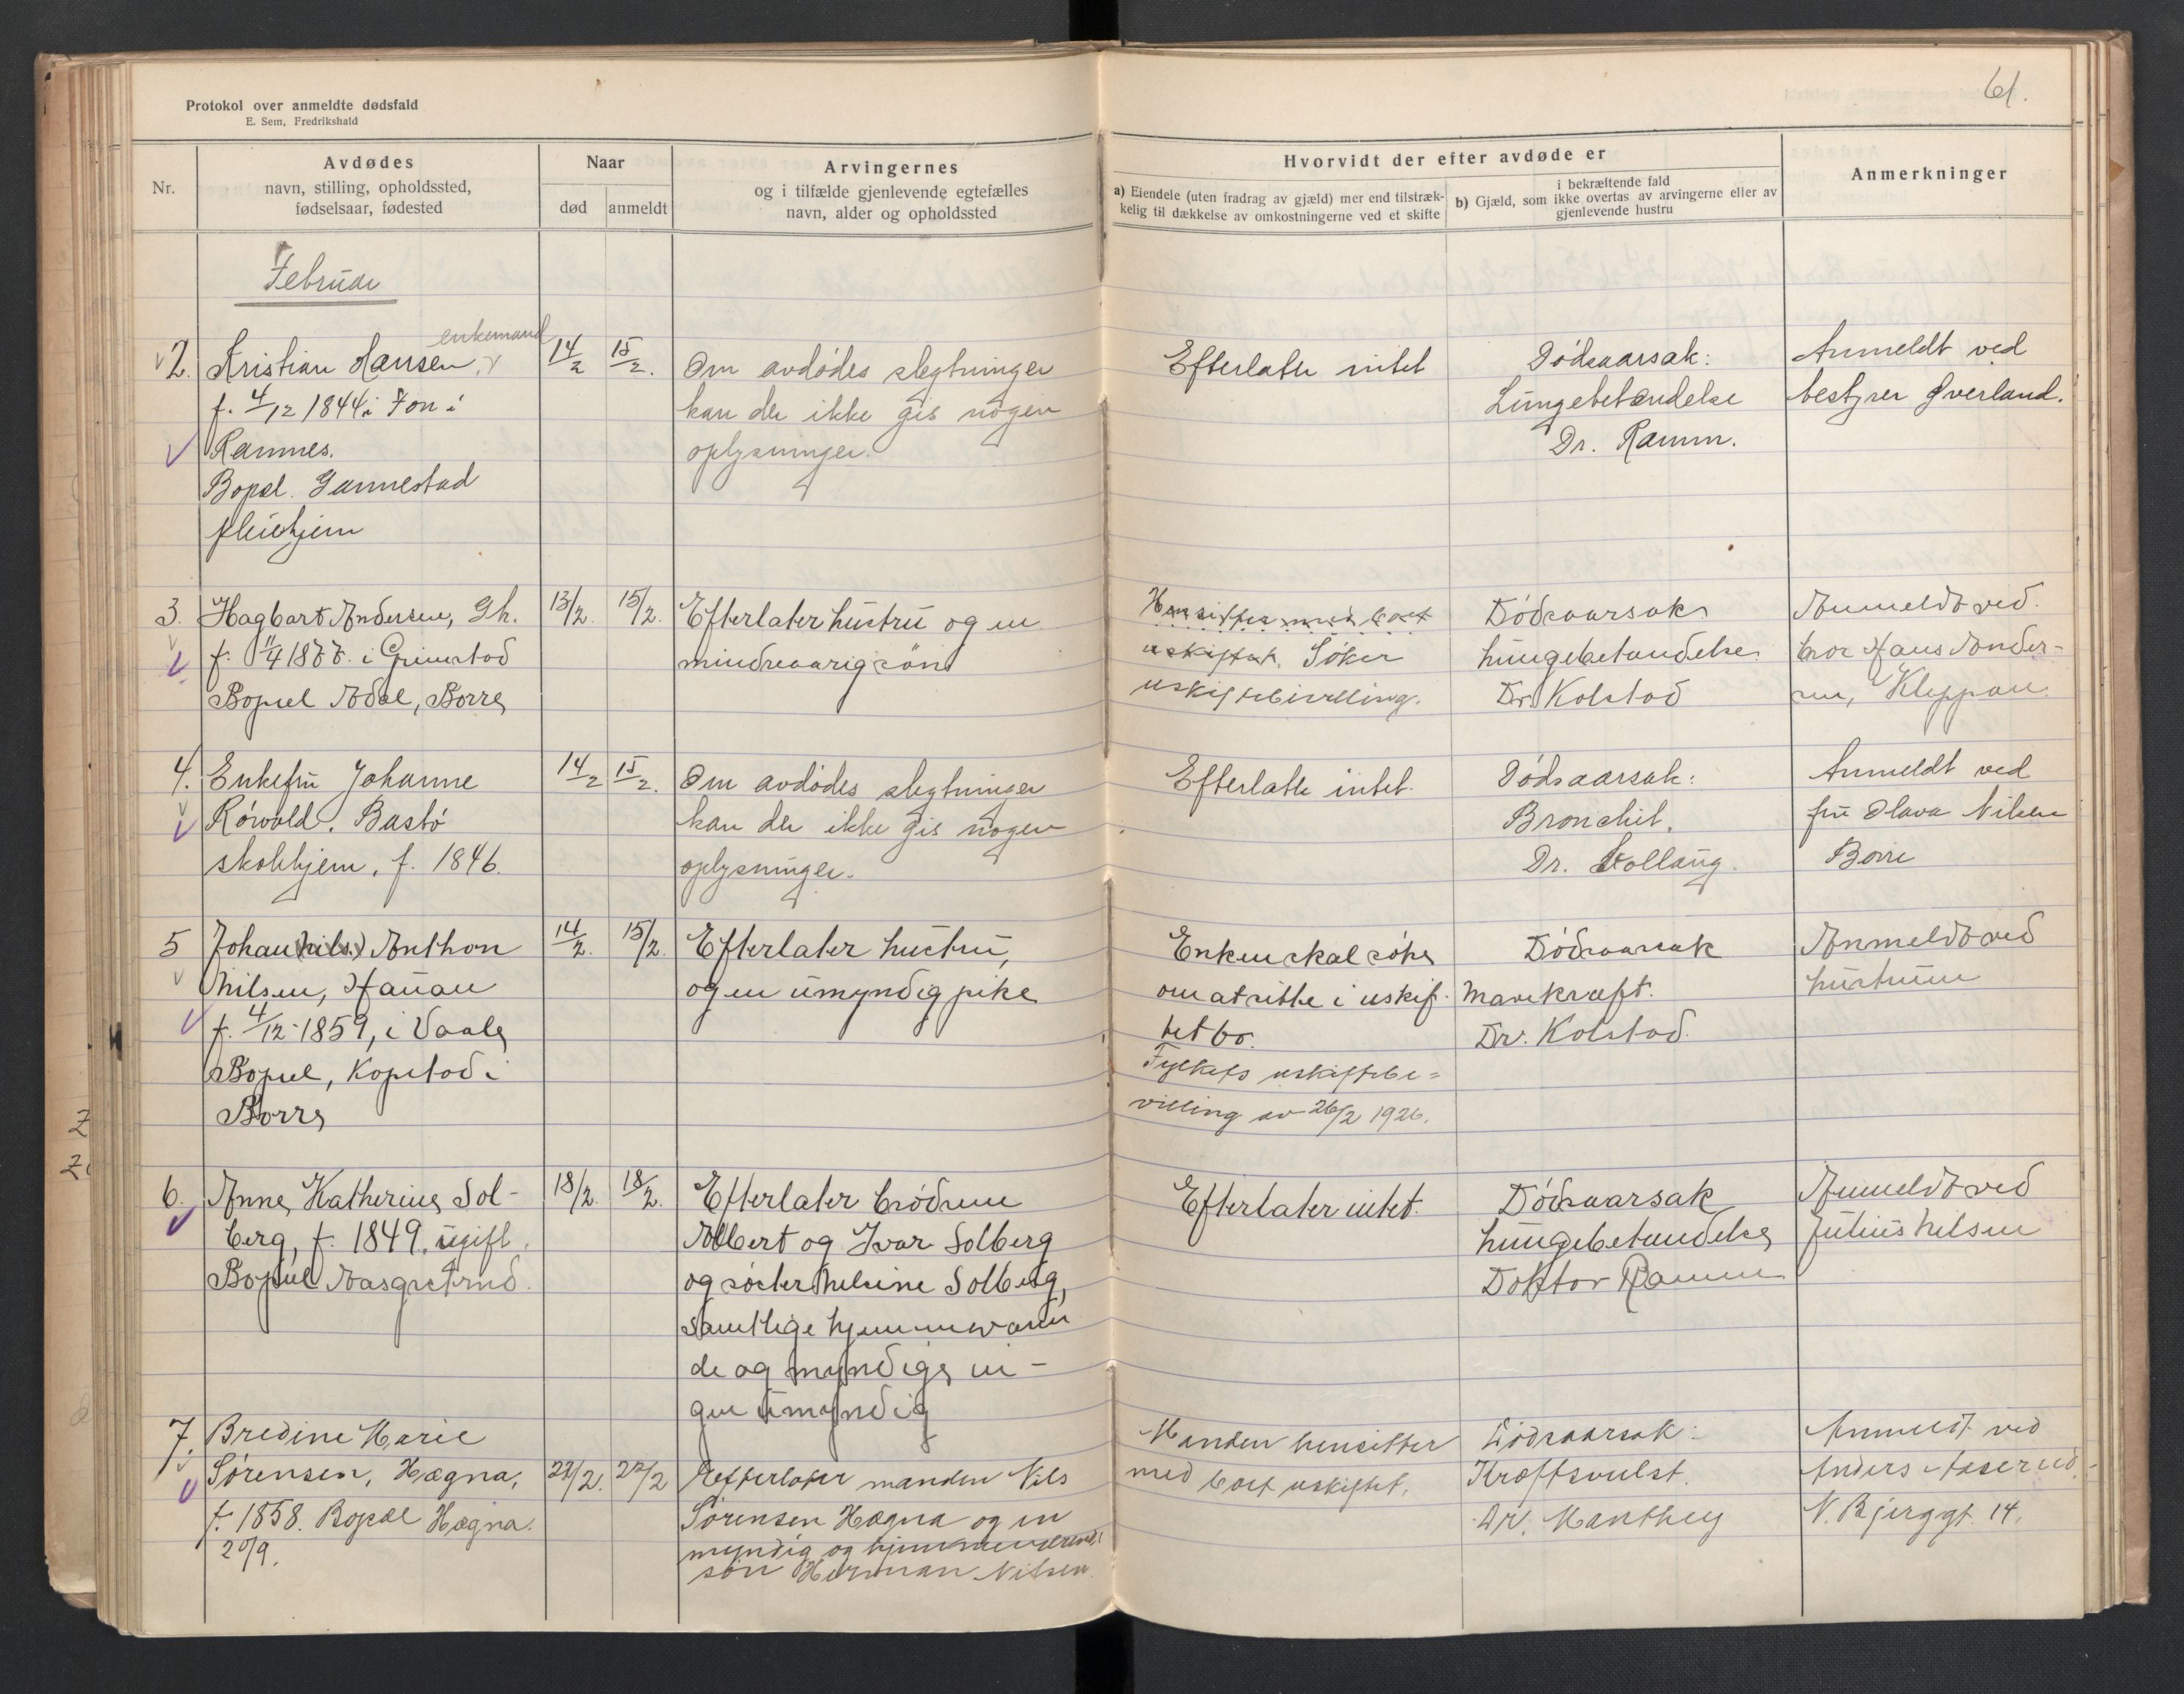 Protokol over anmeldte dødsfald
E. Sem, Fredrikshald
61.
Nr.
Avdødes
navn, stilling, opholdssted,
fødselsaar, fødested
Naar
død
anmeldt
Arvingernes
og i tilfælde gjenlevende egtefælles
navn, alder og opholdssted
Hvorvidt der efter avdøde er
a) Eiendele (uten fradrag av gjæld) mer end tilstræk-
kelig til dækkelse av omkostningerne ved et skifte
i bekræftende fald
b) Gjæld, som ikke overtas av arvingerne eller av
gjenlevende hustru
Anmerkninger
Februar
2. Kristian Hansen, enkemand
f. 4/12 1844 i Fon i
Ramnes.
Bopæl. Gannestad
pleiehjem
14/2
15/2.
Om avdødes slegtninger
kan der ikke gis nogen
oplysninger.
Efterlater intet
Dødsaarsak:
Lungebetændelse
Dr. Ramm.
Anmeldt ved
bestyrer Øverland.
3. Hagbart Andersen, Gh.
f. 11/4 1877 i Grimstad
Bopæl Adal, Borre
13/2.
15/2.
Efterlater hustru og en
mindreaarig søn
Hensitter med boet
uskiftet. Søker
uskiftebevilling.
Dødsaarsak
Lungebetændelse
Dr. Kolstad
Anmeldt ved.
bror Hans Ander-
sen, Kleppan.
4. Enkefru Johanne
Røwold. Bastø
skolehjem, f. 1846.
14/2
15/2.
Om avdødes slegtninger
kan der ikke gis nogen
oplysninger.
Efterlater intet.
Dødsaarsak:
Bronchit.
Dr. Sollaug.
Anmeldt ved
fru Olava Nilsen
Borre
5 Johan (Nils.) Anthon
Nilsen, Hauan
f. 4/12-1859, i Vaale
Bopæl, Kopstad i
Borre
14/2.
15/2.
Efterlater hustru,
og en umyndig pike
Enken skal søke
om at sitte i uskif-
tet bo.
Fylkets uskiftebe=
villing av 26/2 1926.
Dødsaarsak
Mavekræft.
Dr. Kolstad.
Anmeldt ved
hustruen
6. Anne Katherine Sol-
berg, f. 1849. ugift.
Bopæl Aasgrstrnd.
18/2.
18/2.
Efterlater brødrene
Albert og Ivar Solberg
og søster Nelsine Solberg,
samtlige hjemmeværen
de og myndige, in-
gen umyndig
Efterlater intet.
Dødsaarsak
Lungebetændelse
Doktor Ramm
Anmeldt ved
Julius Nilsen
7. Bredine Marie
Sørensen, Hægna,
f. 1858. Bopæl Hægna.
20/9.
22/2.
22/2
Efterlater manden Nils
Sørensen Hægna og en
myndig og hjemmeværende
søn Herman Nilsen
Manden hensitter
med boet uskiftet.
Dødsaarsak:
Kræftsvulst.
Dr. Manthey
Anmeldt ved
Anders Aaserud.
N. Bjerggt. 14.